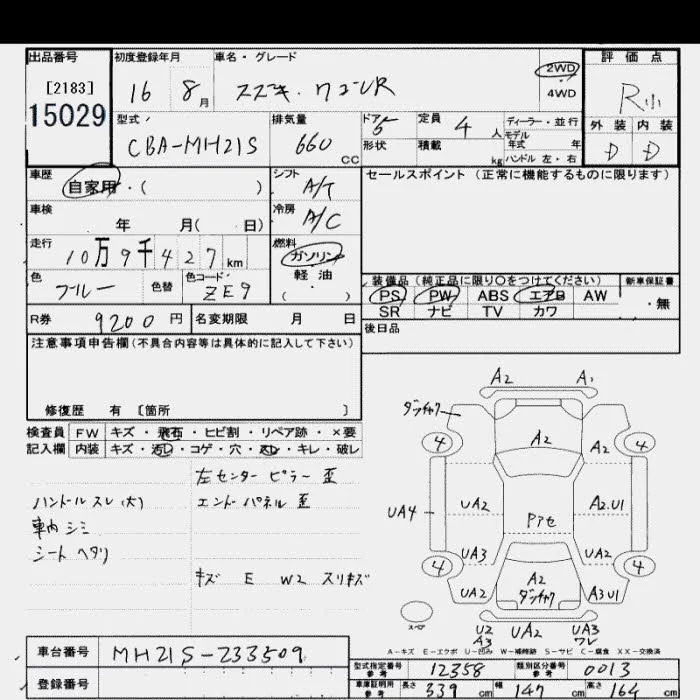 出品番号 初度登録年月 車名・グレード 評価点
[2183] 16 8月 スズキ・ワゴンR 2WD 4WD R小
15029
型式 排気量 ドア 定員 ディーラー・並行 外装 内装
CBA-MH21S 660cc 5 4人 モデル年式 年 D D
形状 積載 kg ハンドル 左・右
車歴 シフト セールスポイント (正常に機能するものに限ります)
自家用・( ) A/T
車検 冷房
年 月( 日) A/C
走行 燃料
10万9千427km ガソリン
色 色替 色コード 軽油
ブルー ZE9 ( )
装備品(純正品に限り〇をつけてください) 新車保証書
PS PW ABS エアB AW ・無
SR ナビ TV カワ
R券 9200円 名変期限 月 日 後日品
注意事項申告欄(不具合内容等は具体的に記入して下さい)
修復歴 有 [箇所 ]
検査員 FW キズ・飛石・ヒビ割・リペア跡・×要
記入欄 内装 キズ・汚レ・コゲ・穴・スレ・キレ・破レ
左センターピラー歪
ハンドルスレ(大) エンドパネル歪
車内シミ
シートヘタリ
キズ E W2 スリキズ
A2 A1
ダンチャク
4 A2 A2 4
UA4 UA2 Pアセ A2.U1
UA3 UA2
4 A2 4
UA2 ダンチャク A3U1
スペア
U2 UA2 UA3
A3 ワレ
A-キズ E-エクボ U-凹み W-補修跡 S-サビ C-腐食 XX-交換済
車台番号 MH21S-233509
登録番号
型式指定番号 参考 12358 類別区分番号 参考 0013
車庫証明用 参考 長さ 339cm 幅 147cm 高さ 164cm